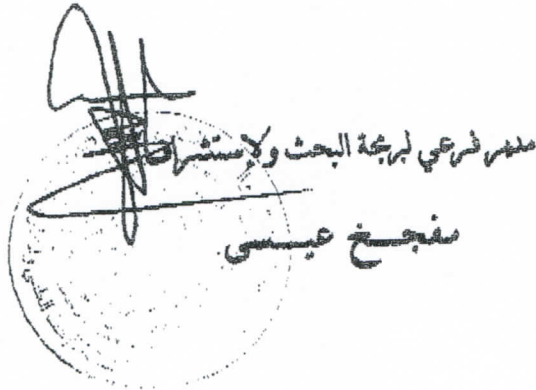 مدير فرعي لبرمجة البحث والإستشراف
مفجخ عيسى